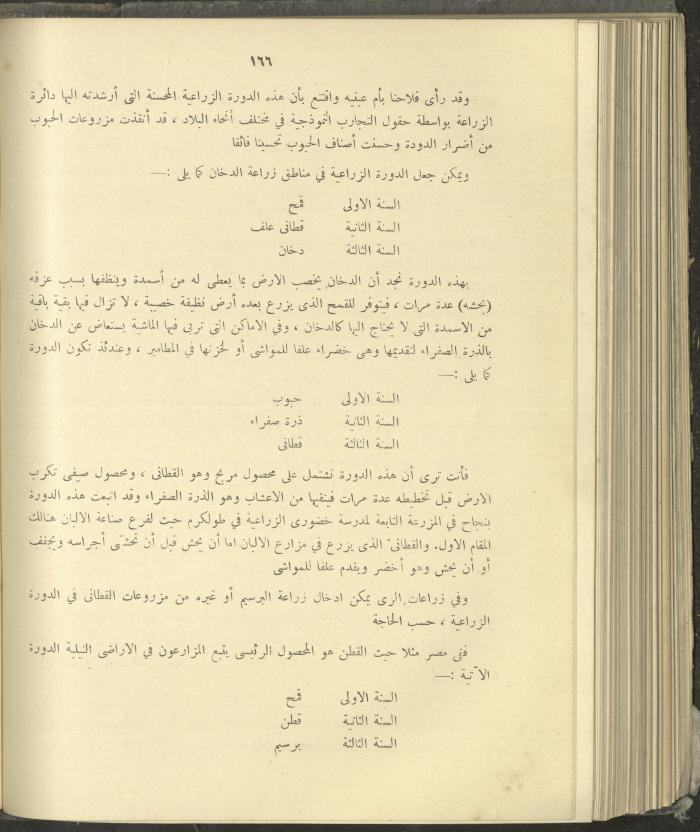 ١٦٦
وقد رأى فلاحنا بأم عينيه واقتنع بأن هذه الدورة الزراعية المحسنة التى أرشدته اليها دائرة
الزراعة بواسطة حقول التجارب النموذجية في مختلف أنحاء البلاد ، قد أنقذت مزروعات الحبوب
من أضرار الدودة وحسنت أصناف الحبوب تحسينا فائقا
ويمكن جعل الدورة الزراعية في مناطق زراعة الدخان كما يلى :—
السنة الاولى قمح
السنة الثانية قطانى علف
السنة الثالثة دخان
بهذه الدورة نجد أن الدخان يخصب الارض بما يعطى له من أسمدة وينظفها بسبب عزقه
(بحشه) عدة مرات ، فيتوفر للقمح الذى يزرع بعده أرض نظيفة خصيبة ، لا تزال فيها بقية باقية
من الاسمدة التى لا يحتاج اليها كالدخان ، وفي الاماكن التى تربى فيها الماشية يستعاض عن الدخان
بالذرة الصفراء لتقديمها وهى خضراء علفا للمواشى أو لخزنها في المطامير ، وعندئذ تكون الدورة
كما يلى :—
السنة الاولى حبوب
السنة الثانية ذرة صفراء
السنة الثالثة قطانى
فأنت ترى أن هذه الدورة تشتمل على محصول مريح وهو القطانى ، ومحصول صيفى تكرب
الارض قبل تخطيطه عدة مرات فينقيها من الاعشاب وهو الذرة الصفراء وقد اتبعت هذه الدورة
بنجاح في المزرعة التابعة لمدرسة خضورى الزراعية في طولكرم حيث لفرع صناعة الالبان هنالك
المقام الاول. والقطانى الذى يزرع في مزارع الالبان اما أن يحش قبل أن تحشى أجراسه ويجفف
أو أن يحش وهو أخضر ويقدم علفا للمواشى
وفي زراعات الرى يمكن ادخال زراعة البرسيم أو غيره من مزروعات القطانى في الدورة
الزراعية ، حسب الحاجة
ففى مصر مثلا حيث القطن هو المحصول الرئيسى يتبع المزارعون في الاراضى النيلية الدورة
الآتية :—
السنة الاولى قمح
السنة الثانية قطن
السنة الثالثة برسيم